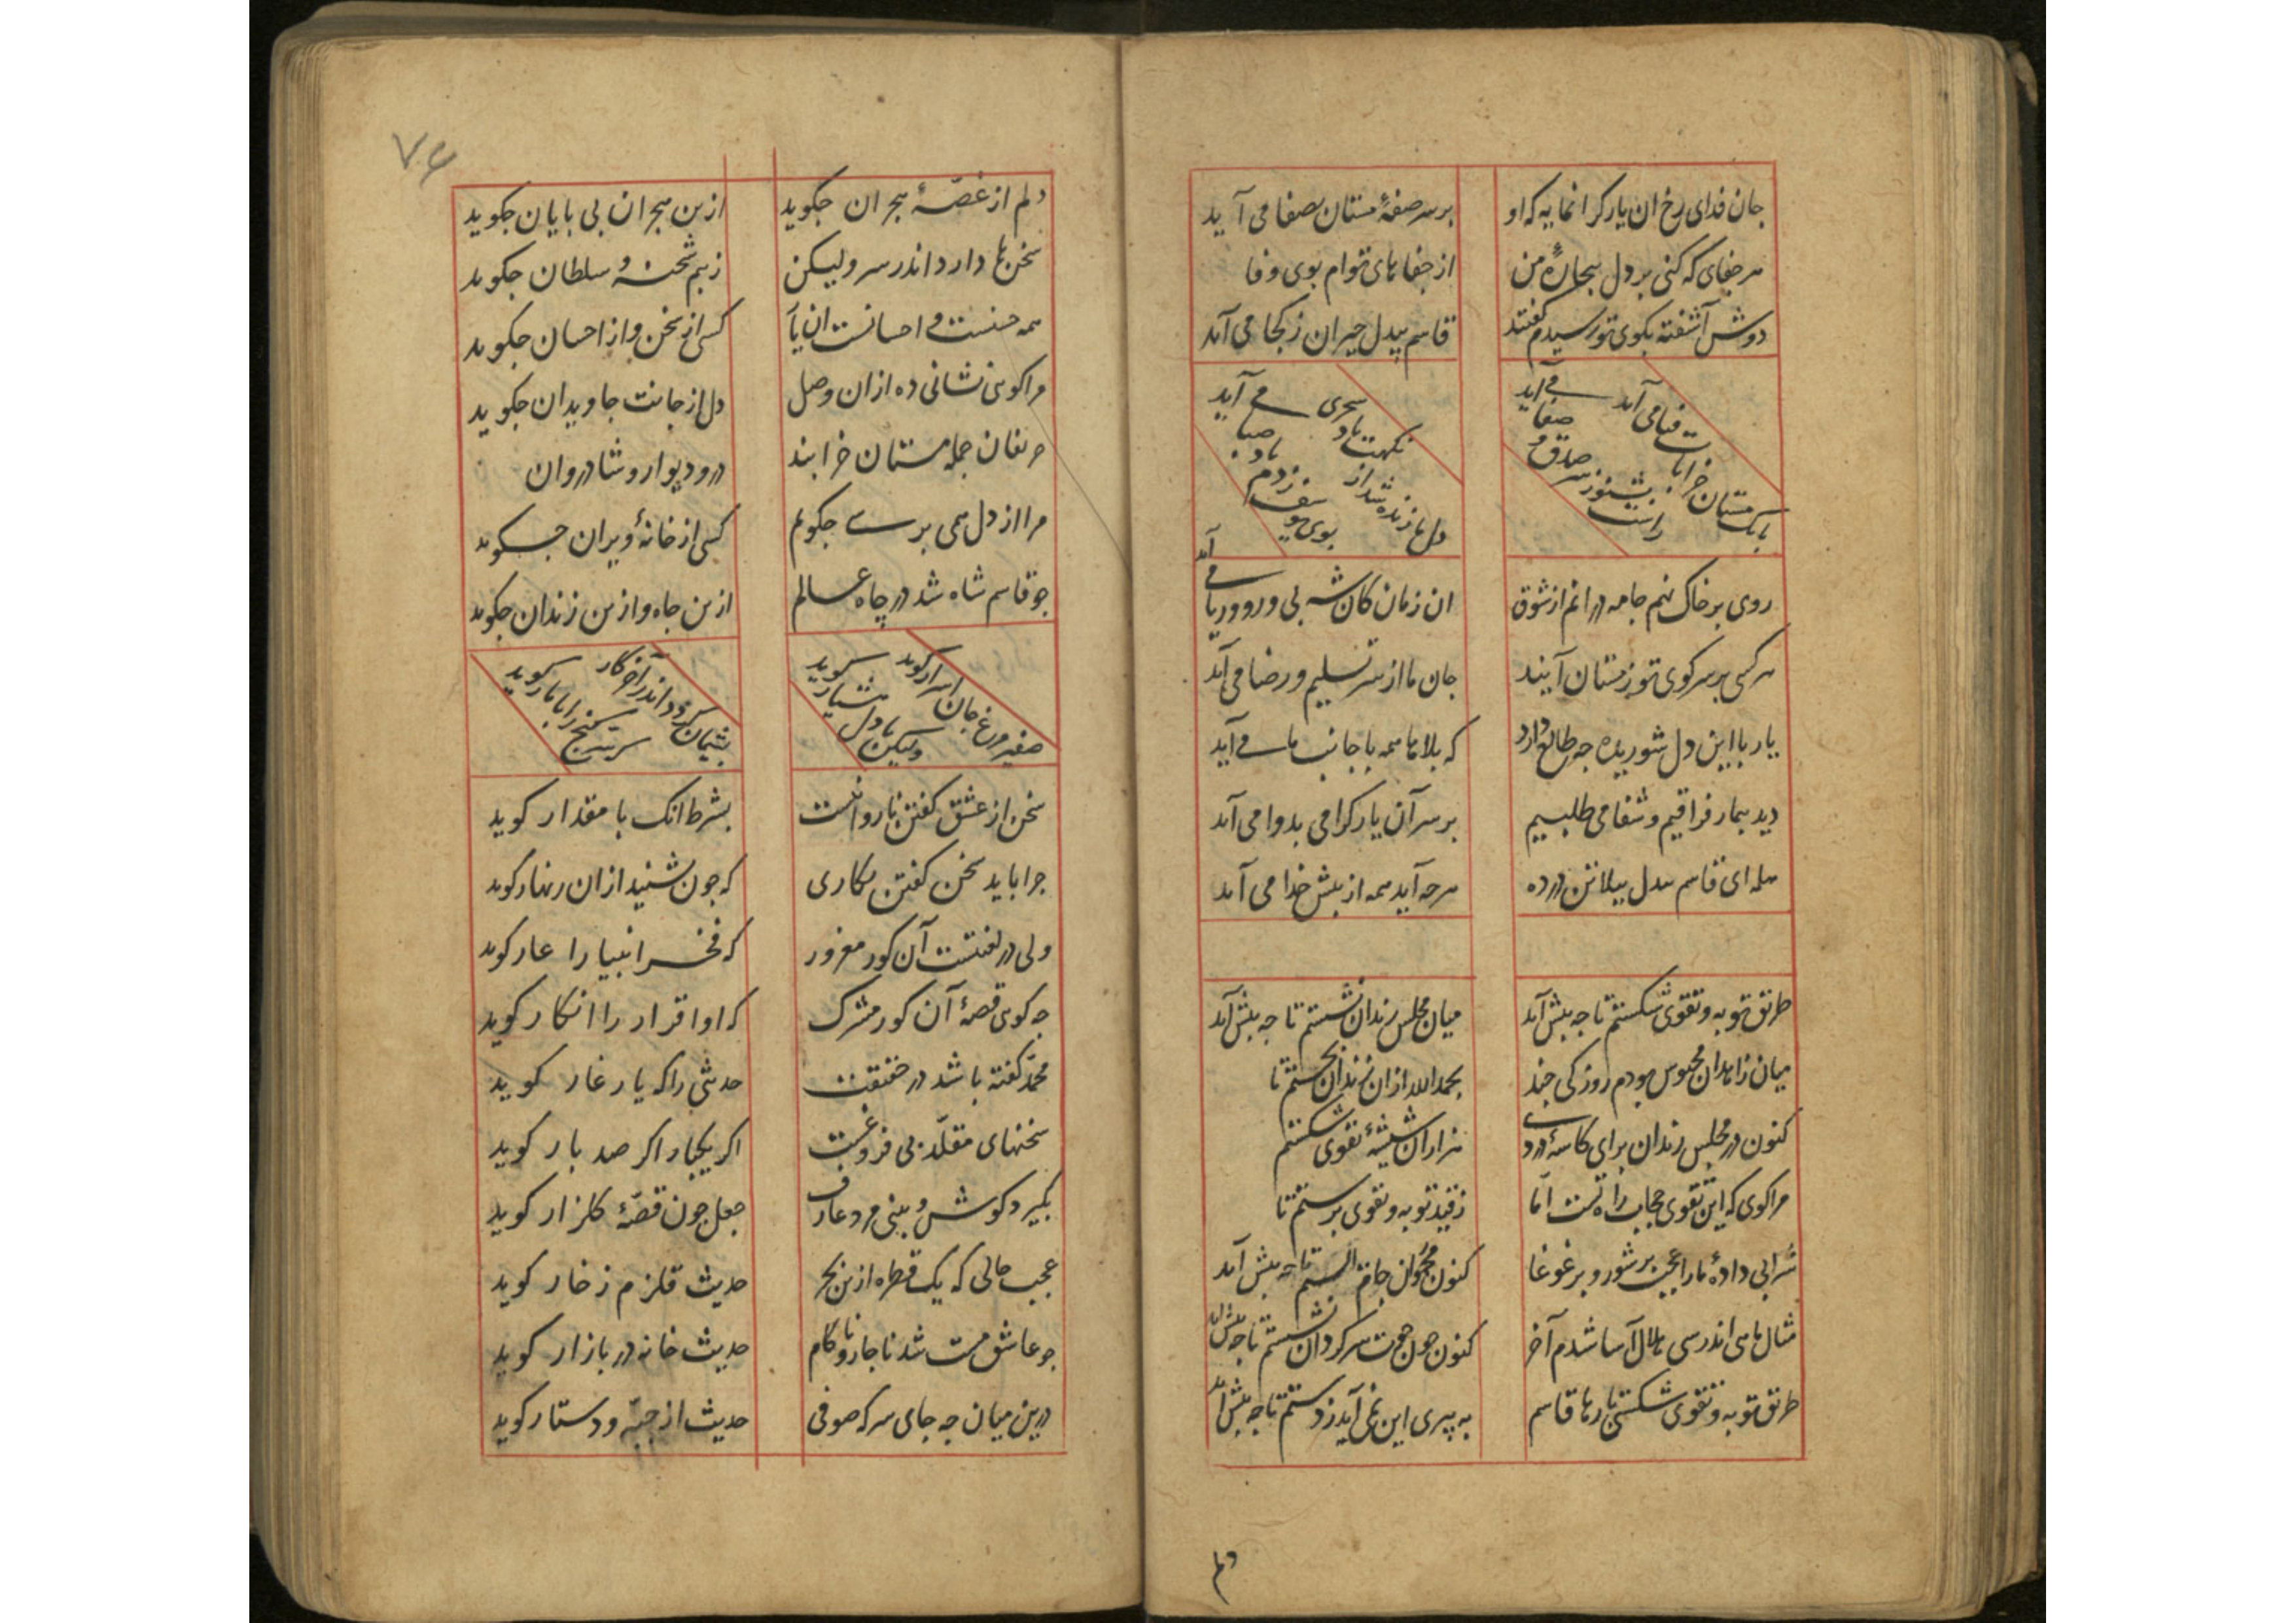 جان فدای رخ ان یار کرانمایه که او
بر سر صفهٔ مستان بصفا می آید
هر جفای که کنی بر دل بیچارهٔ من
از جفاهای توام بوی وفا
دوش آشفته بکوی تو رسیدم کفتند
قاسم بیدل حیران ز کجا می آید
بانک مستان خرابات فنا می آید
بشنو از سر صدق و صفا
راست می آید
نکهت باد سحری می آید
دل ما زنده شد از باد صبا
بوی یوسف ز دم
روی بر خاک نهم جامه درانم از شوق
ان زمان کان شه بی ورو وریا می آید
هر کسی بر سر کوی تو ز مستان آیند
جان ما از سر تسلیم و رضا می آید
یا رب با این دل شوریده چه طالع دارد
که بلاها همه با جانب ما می آید
دید بیمار فراقیم و شفا می طلبیم
بر سر آن یار کرامی بدوا می آید
هله ای قاسم بیدل ببلا تن در ده
هرجه آید همه از بیش خدا می آید
طریق توبه و تقوی شکستم تا جه بیش آید
میان مجلس رندان نشستم تا جه بیش آید
میان زاهدان محبوس بودم روزکی جند
بحمدالله از ان زندان بجستم تا
کنون در مجلس رندان برای کاسهٔ دردی
هزاران شیشهٔ تقوی شکستم
مرا کوی که این تقوی حجاب راه تست اما
ز قید توبه و تقوی برستم تا
شرابی دادهٔ ما را عجب بر شور و بر غوغا
کنون مخموران جام الستم تا جه بیش آید
مثال ماهی اندر سی هلال آسا شدم آخر
کنون جون حوت سرکردان نشستم تا جه بیش
طریق توبه و تقوی شکستی بارها قاسم
به پیری این نمی آید ز دستم تا جه بیش آید
دلم
۷۶
دلم از غصهٔ هجران جکوید
ازین هجران بی بایان جکوید
سخن ها دارد اندر سر ولیکن
ز بیم شحنه و سلطان جکوید
همه حسنست و احسانست ان یار
کسی از حسن و از احسان جکوید
مرا کوئی نشانی ده از ان وصل
دل از جانت جاویدان جکوید
حریفان جمله مستان خرابند
در و دیوار و شادروان
مرا از دل همی برسی جکویم
کسی از خانهٔ ویران جکوید
جو قاسم شاه شد در چاه عالم
ازین جاه و ازین زندان جکوید
صفیر مرغ جان اسرار کوید
ولیکن با دل هشیار کوید
بشیمان کردد اندر آخر کار
سخن را با کوید
سخن از عشق کفتن نارو انست
بشرط انک با مقدار کوید
جرا باید سخن کفتن بکاری
که جون بشنید از ان زنهار کوید
ولی در لعنتست آن کور مغرور
که فخر انبیا را عار کوید
جه کوی قصهٔ آن کور مشرک
که او اقرار را انکار کوید
محمد کفته باشد در حقیقت
حدیثی را که یار غار کوید
سخنهای مقلد بی فروغست
اکر یکبار اکر صد بار کوید
بکیرد کوش و بینی مرد عارف
جعل جون قصهٔ کلزار کوید
عجب حالی که یک قطره ازین بحر
حدیث قلزم زخار کوید
جو عاشق مست شد ناجار و ناکام
حدیث خانه در بازار کوید
درین میان جه جای سر که صوفی
حدیث از جبّه و دستار کوید